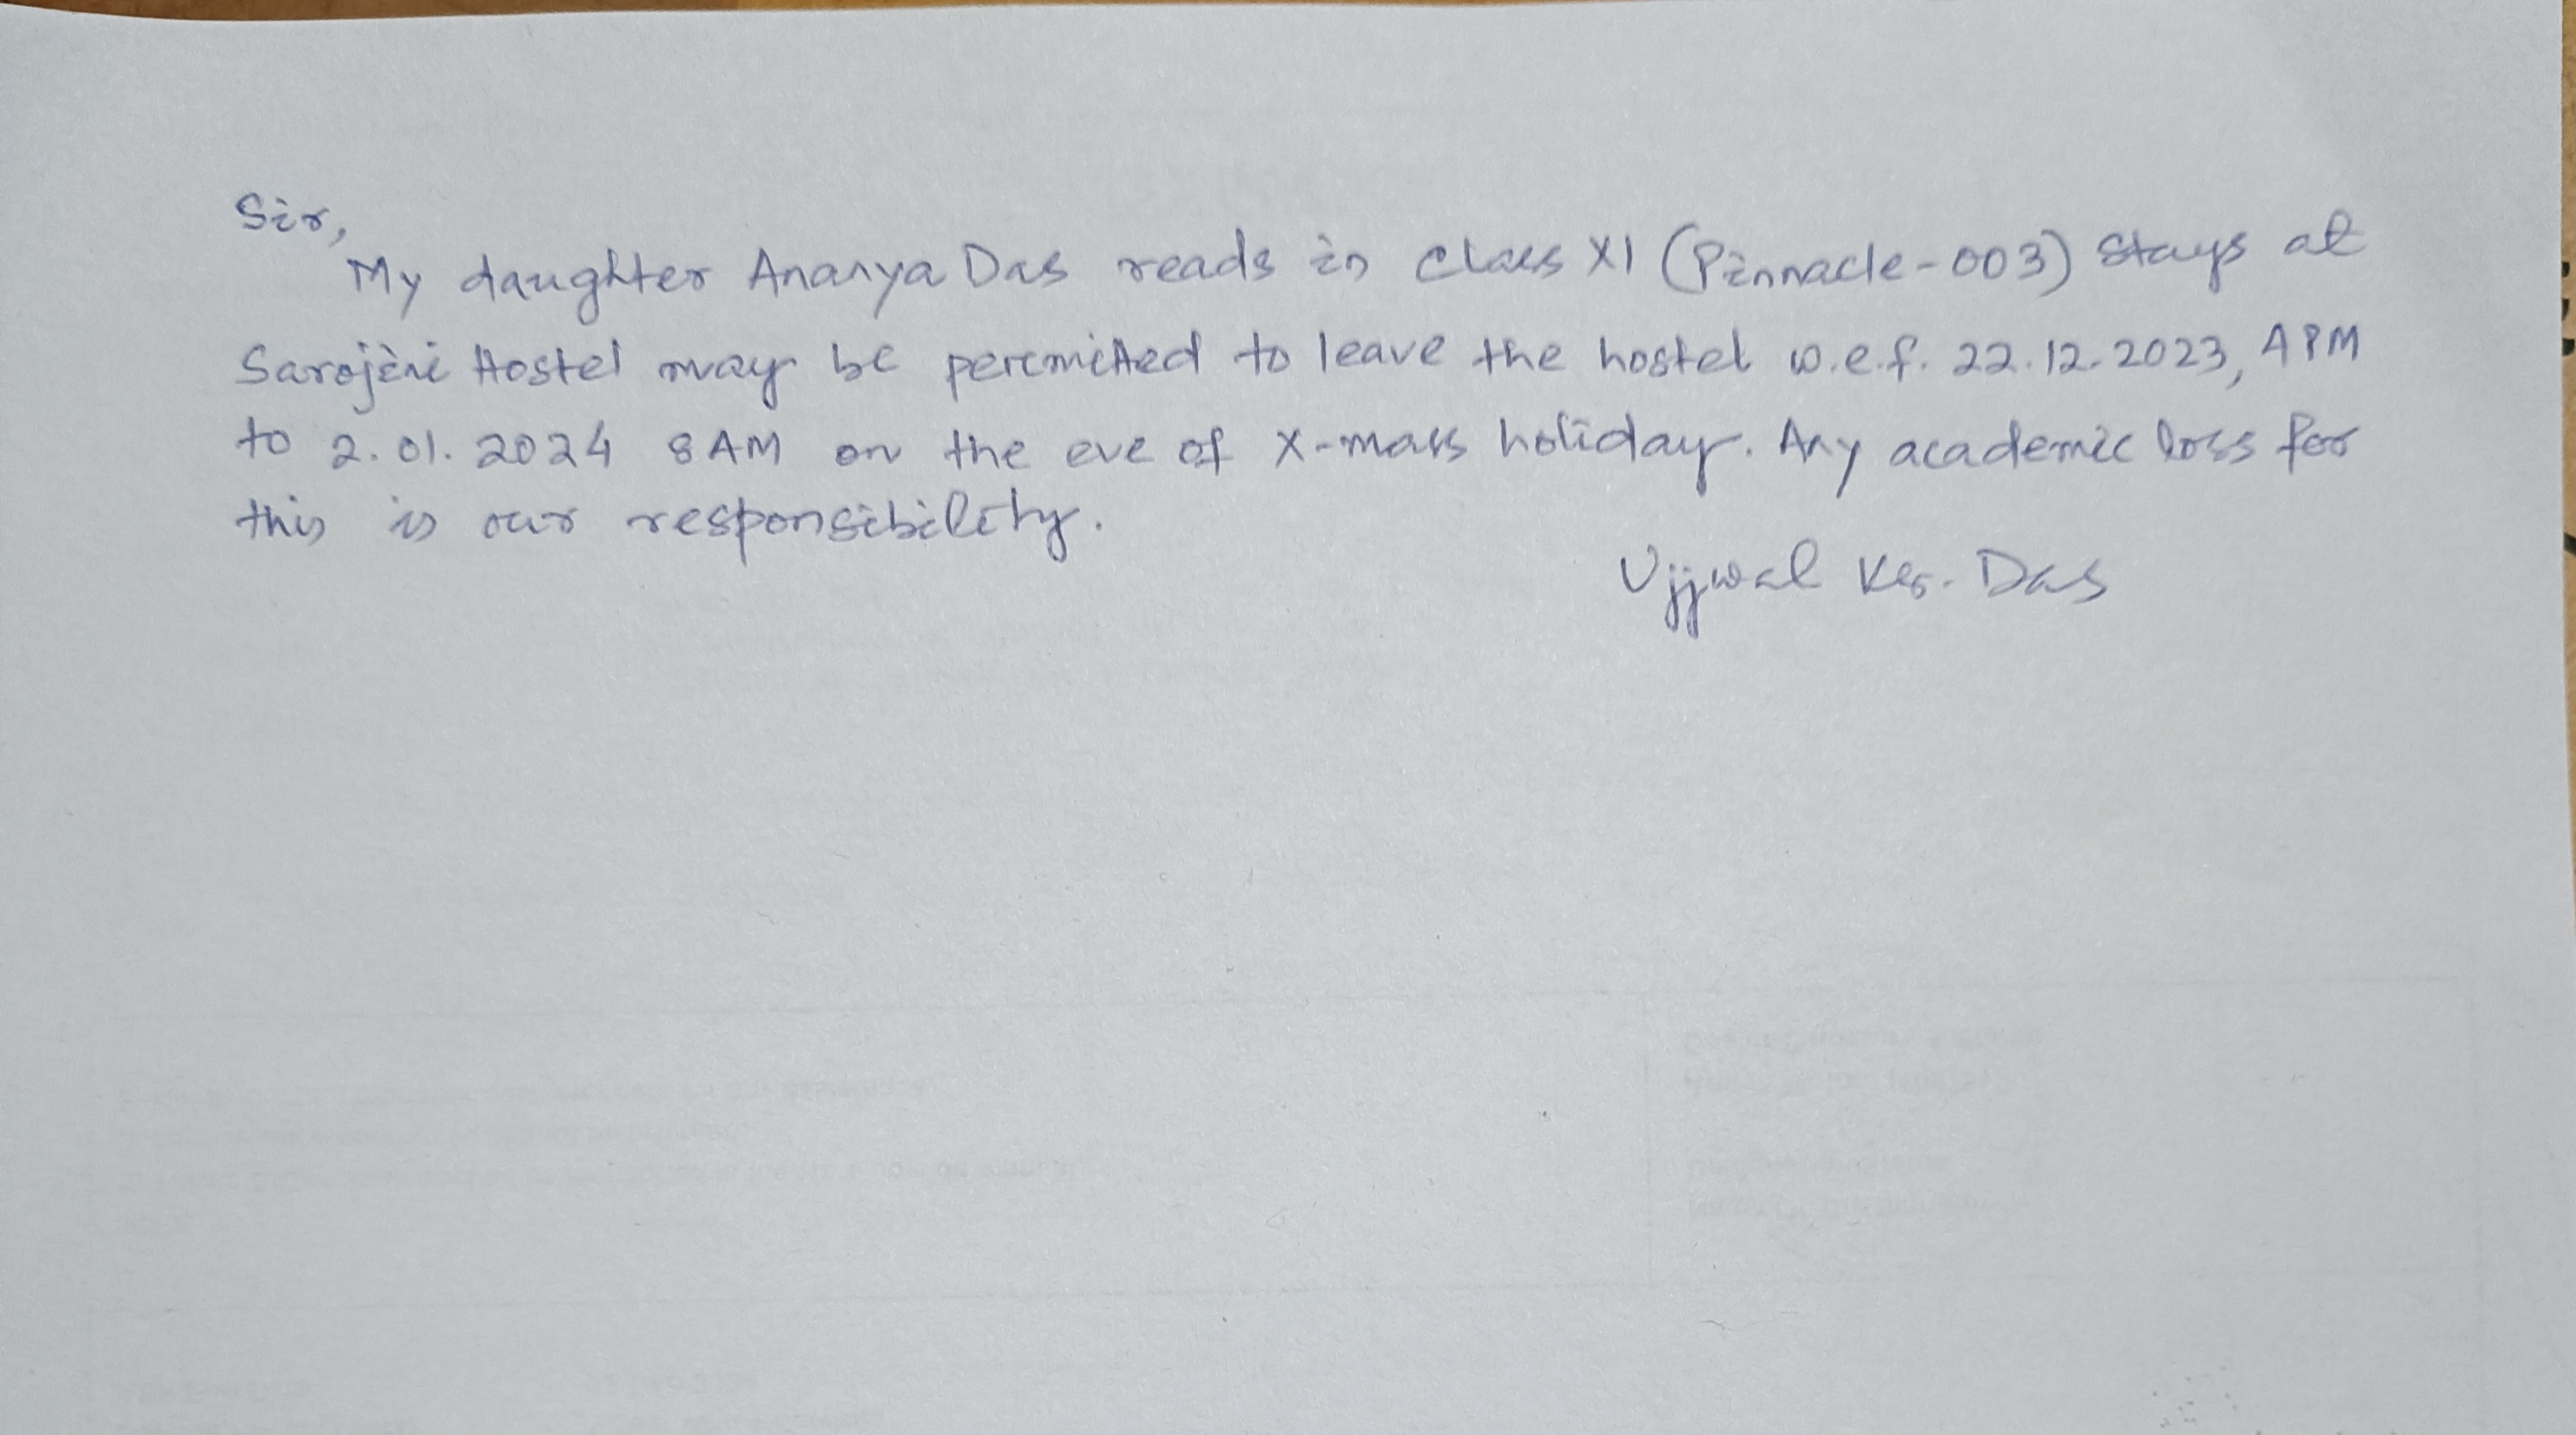 Sir,
My daughter Ananya Das reads in class XI (Pinnacle-003) stays at
Sarojini Hostel may be peremitted to leave the hostel w.e.f. 22.12.2023, 4 PM
to 2.01.2024 8 AM on the eve of X-mass holiday. Any academic loss for
this is our responsibility.
Ujjwal Kr. Das